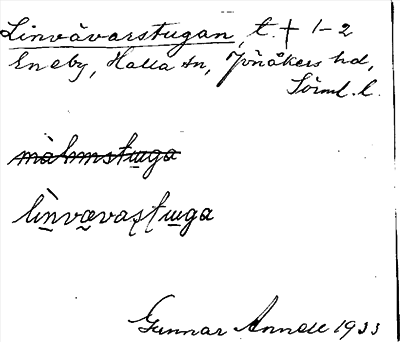 Linvävarstugan, t. † 1-2
Eneby, Halla sn, Jönåkers hd,
Sörml. l.
màlmstuga
lìnvævastuga
Gunnar Annell 1933